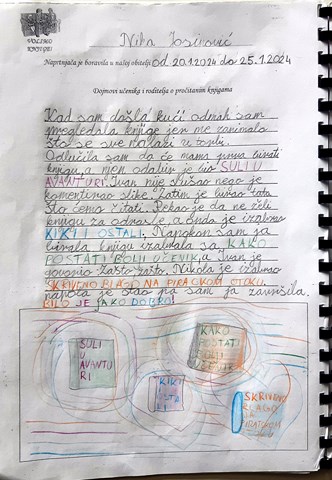 VOLIMO
KNJIGE!
Nika Josipović
Naprtnjača je boravila u našoj obitelji od 20.1.2024 do 25.1.2024
Dojmovi učenika i roditelja o pročitanim knjigama
Kad sam došla kući odmah sam
pregledala knjige jer me zanimalo
što se sve nalazi u torbi.
Odlučila sam da će mama prva birati
knjigu, a njen odabir je bio SULI U
AVANTURI. Ivan nije slušao nego je
komentirao slike. Zatim je birao tata
što ćemo čitati. Rekao je da ne želi
knjigu za odrasle, a onda je izabrao
KIKI I OSTALI. Napokon sam ja
birala knjigu izabrala sam KAKO
POSTATI BOLJI UČENIK, a Ivan je
govorio zašto zašto. Nikola je izabrao
SKRIVENO BLAGO NA PIRATSKOM OTOKU,
napola je stao pa sam ja završila.
BILO JE JAKO DOBRO!
SULI
U
AVANTU
RI
KAKO
POSTATI
BOLJI
UČENIK
KIKI
I OSTA
LI
SKRIVENO
BLAGO
NA
PIRATSKOM